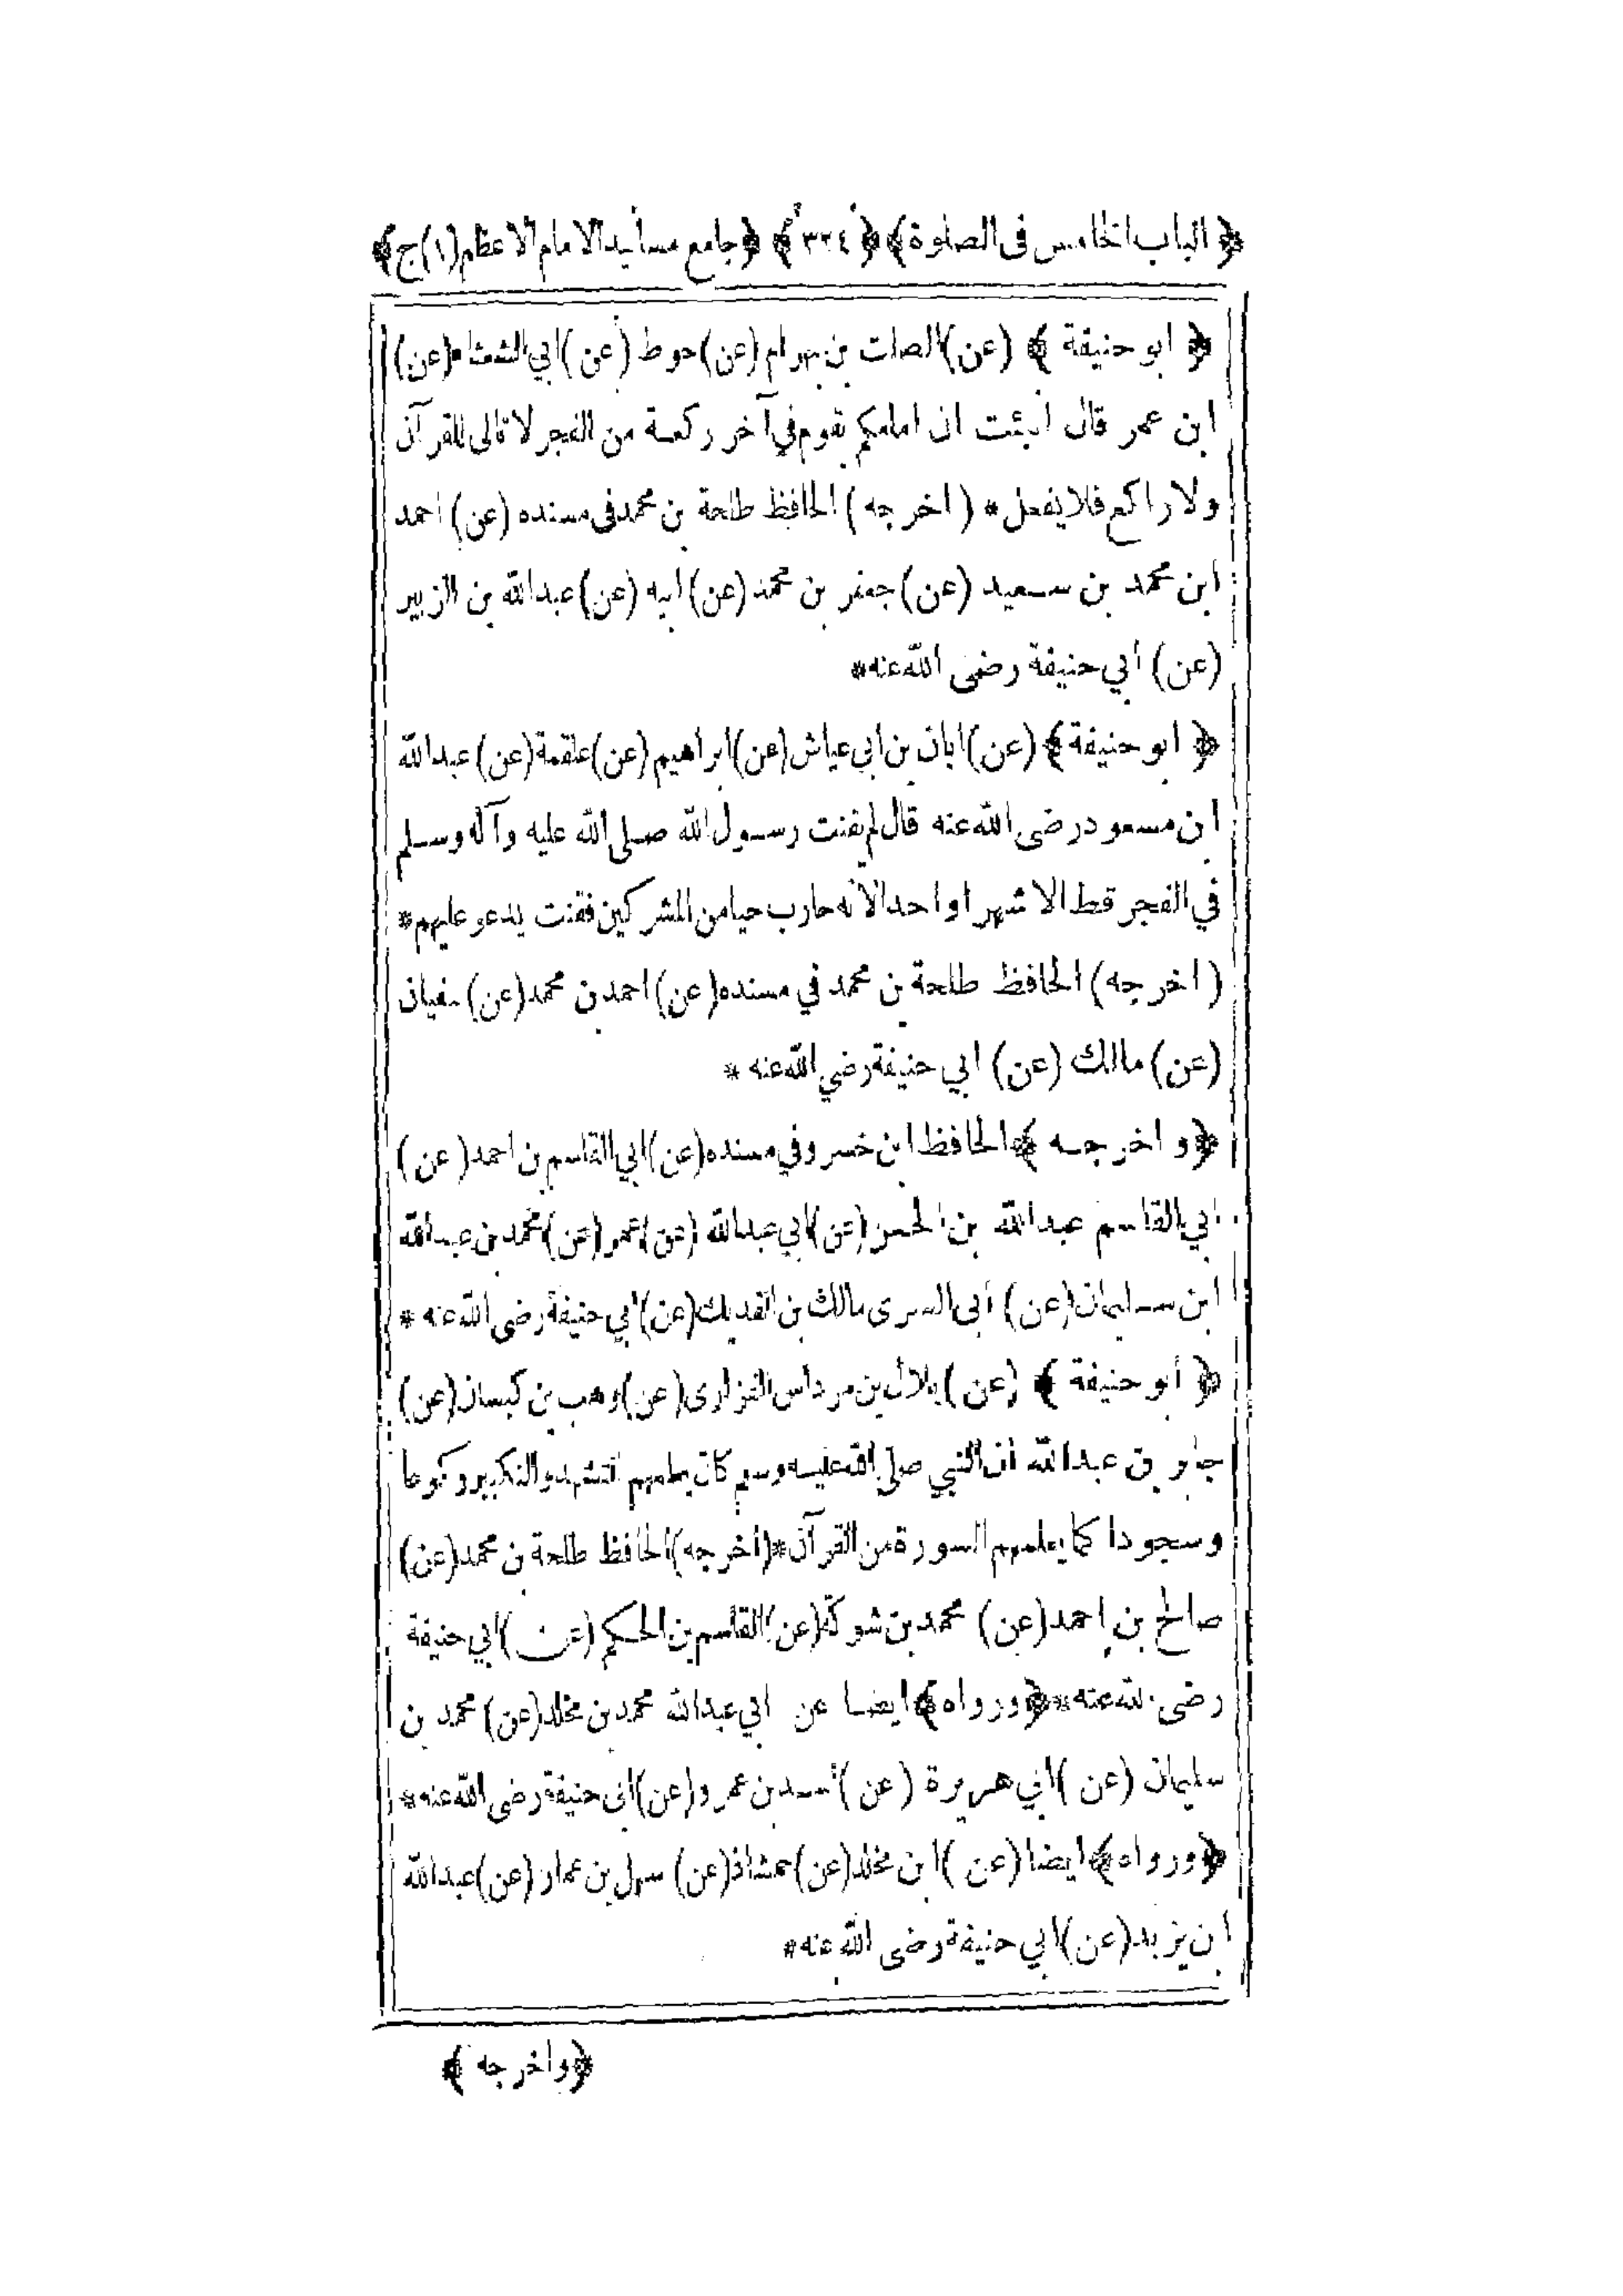 ﴿ الباب الخامس فى الصلوة ﴾ ﴿ ٣٢٤ ﴾ ﴿ جامع مسانيد الامام الاعظم (١) ج ﴾
﴿ ابو حنيفة ﴾ (عن) الصلت بن بهرام (عن) حوط (عن) ابي الشعثاء (عن)
ابن عمر قال انبئت ان امامكم يقوم في آخر ركعة من الفجر لا تالى للقرآن
ولا راكع فلا يفعل * (اخرجه) الحافظ طلحة بن محمد فى مسنده (عن) احمد
ابن محمد بن سعيد (عن) جعفر بن محمد (عن) ابيه (عن) عبد الله بن الزبير
(عن) أبي حنيفة رضى الله عنه *
﴿ ابو حنيفة ﴾ (عن) ابان بن ابي عياش (عن) ابراهيم (عن) علقمة (عن) عبد الله
ابن مسعود رضى الله عنه قال لم يقنت رسول الله صلى الله عليه وآله وسلم
في الفجر قط الا شهرا واحدا لانه حارب حيا من المشركين فقنت يدعو عليهم *
(اخرجه) الحافظ طلحة بن محمد في مسنده (عن) احمد بن محمد (عن) سفيان
(عن) مالك (عن) ابي حنيفة رضي الله عنه *
﴿ واخرجه ﴾ الحافظ ابن خسرو في مسنده (عن) ابي القاسم بن احمد (عن)
ابي القاسم عبد الله بن الحسن (عن) ابي عبد الله (عن) عمر (عن) محمد بن عبد الله
ابن سليمان (عن) أبى السرى مالك بن الفديك (عن) ابي حنيفة رضى الله عنه *
﴿ أبو حنيفة ﴾ (عن) بلال بن مرداس الفزارى (عن) وهب بن كيسان (عن)
جابر بن عبد الله ان النبي صلى الله عليه وسلم كان يعلمهم التشهد والتكبير وركوعا
وسجودا كما يعلمهم السورة من القرآن * (أخرجه) الحافظ طلحة بن محمد (عن)
صالح بن احمد (عن) محمد بن شوكة (عن) القاسم بن الحكم (عن) ابي حنيفة
رضى الله عنه * ﴿ ورواه ﴾ ايضا عن ابي عبد الله محمد بن مخلد (عن) محمد بن
سليمان (عن) ابي هريرة (عن) اسد بن عمرو (عن) ابى حنيفة رضى الله عنه *
﴿ ورواه ﴾ ايضا (عن) ابن مخلد (عن) حمشاذ (عن) سهل بن عمار (عن) عبد الله
ابن يزيد (عن) ابي حنيفة رضى الله عنه *
﴿ واخرجه ﴾